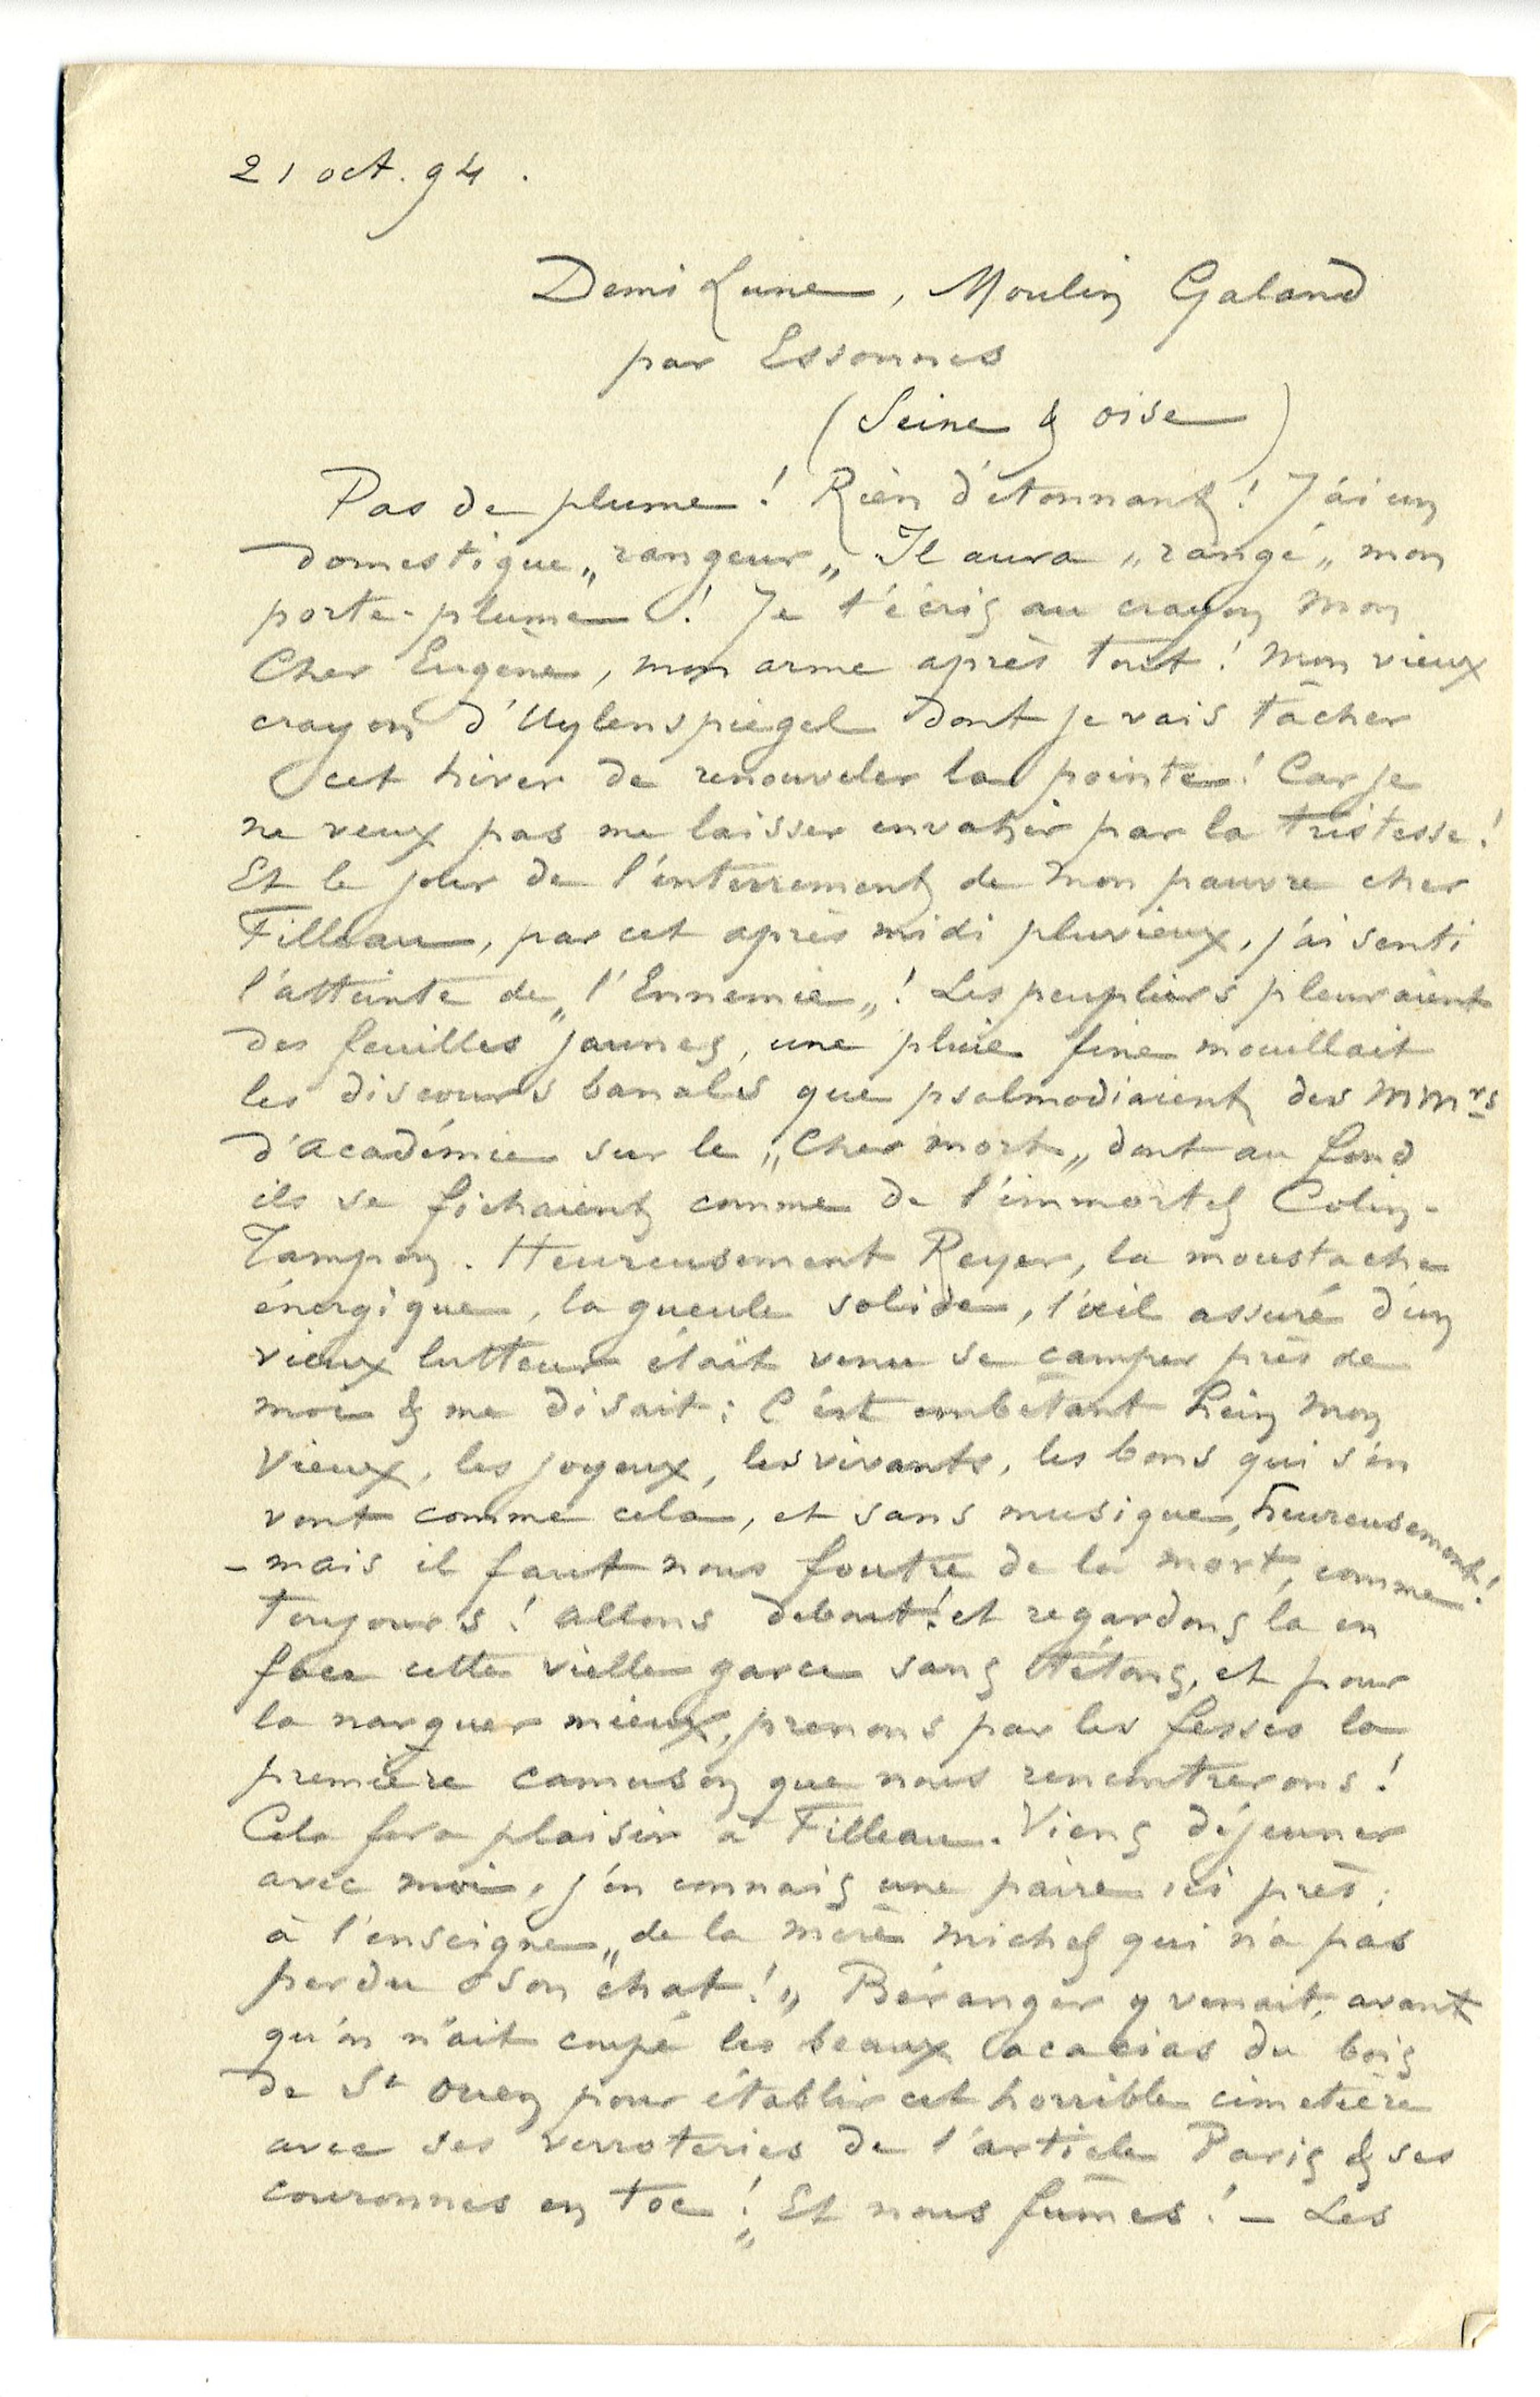 21 oct. 94.
Demi Lune, Moulin Galand
par Essonnes
(Seine & oise)
Pas de plume ! Rien d'étonnant ! J'ai un
domestique „rangeur„ Il aura „rangé„ mon
porte-plume ! Je t'écris au crayon mon
Cher Eugène, mon arme après tout ! Mon vieux
crayon d'Uylenspiegel dont je vais tâcher
cet hiver de renouveler la pointe ! Car je
ne veux pas me laisser envahir par la tristesse !
Et le jour de l'enterrement de mon pauvre cher
Filleau, par cet après midi pluvieux, j'ai senti
l'atteinte de „l'Ennemie„ ! Les peupliers pleuraient
des feuilles jaunes, une pluie fine mouillait
les discours banals que psalmodiaient des MMrs
d'académie sur le „Cher mort„ dont au fond
ils se fichaient comme de l'immortel Colin-
Tampon. Heureusement Reyer, la moustache
énergique, la gueule solide, l'œil assuré d'un
vieux lutteur était venu se camper près de
moi & me disait : C'est embêtant hein mon
vieux, les joyeux, les vivants, les bons qui s'en
vont comme cela, et sans musique, heureusement !
– mais il faut nous foutre de la mort, comme
toujours ! allons debout ! et regardons la en
face cette vielle garce sans tétons, et pour
la narguer mieux, prenons par les fesses la
première camuson que nous rencontrerons !
Cela fera plaisir à Filleau. Viens déjeuner
avec moi, j'en connais une paire ici près :
à l'enseigne „de la mère michel qui n'a pas
perdu son chat ! „ Béranger y venait, avant
qu'on n'ait coupé les beaux acacias du bois
de St Ouen pour établir cet horrible cimetière
avec ses verroteries de l'article Paris & ses
couronnes en toc ! „ Et nous fûmes ! – Les